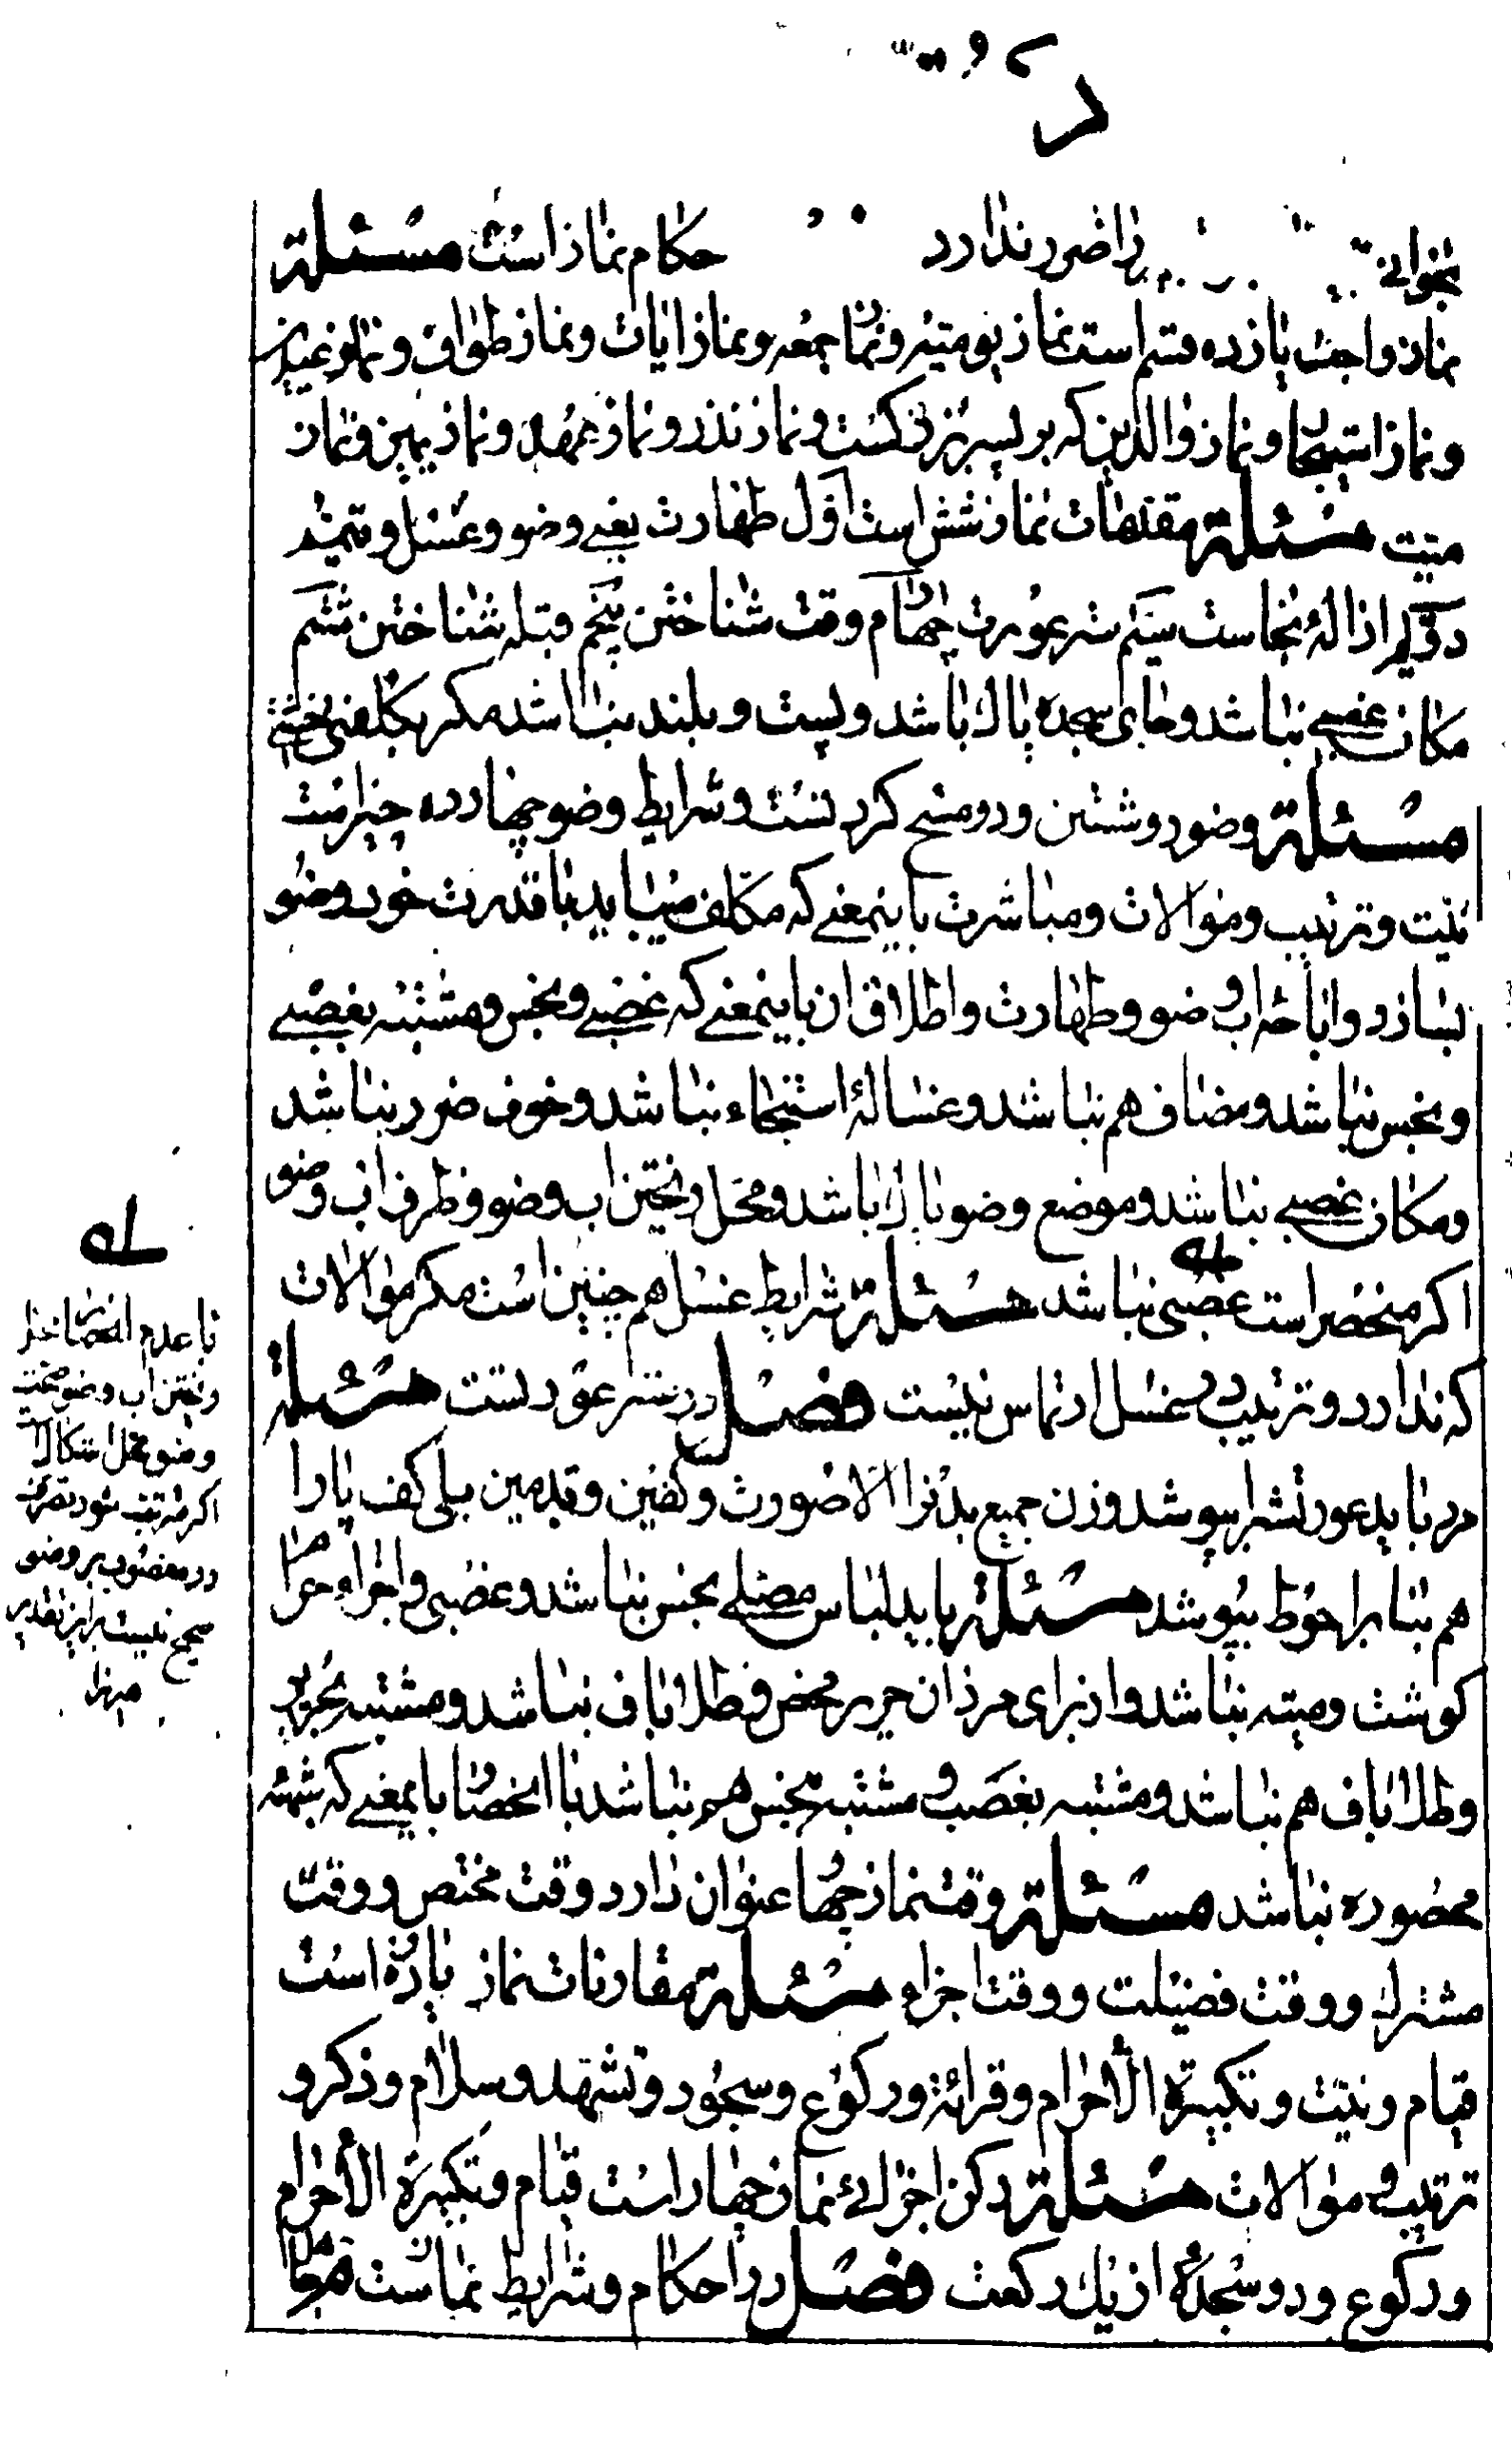 بخوانی را ضرر ندارد حکام نماز است مسئلة
نماز واجب یازده قسم است نماز یومیّه و نماز جمعه و نماز ایات و نماز طواف و نماز عیدین
و نماز استیجار و نماز والدین که بر پسر بزرگست و نماز نذر و نماز عهد و نماز یمین و نماز
میّت مسئلة مقدمات نماز شش است اوّل طهارت یعنی وضو و غسل و تیمّم
دویّم ازالهٔ نجاست سیّم ستر عورت چهارم وقت شناختن پنجم قبله شناختن ششم
مکان غصبی نباشد و جای سجده پاک باشد و پست و بلند نباشد مکر بکلفتی خشتی
مسئلة وضو دو شستن و دو مسح کردنست و شرایط وضو چهارده چیز است
نیّت و ترتیب و موالات و مباشرت باینمعنی که مکلف میباید با قدرت خود وضو
بسازد و اباحه اب وضو و طهارت و اطلاق ان باینمعنی که غصبی و نجس و مشتبه بغصبی
و نجس نباشد و مضاف هم نباشد و غسالهٔ استنجاء نباشد و خوف ضرر نباشد
و مکان غصبی نباشد و موضع وضو پاک باشد و محل ریختن اب وضو و ظرف اب وضو
اکر منحصر است غصبی نباشد مسئلة شرایط غسل هم چنین است مکر موالات
که ندارد و ترتیب در غسل ارتماس نیست فصل در ستر عورتست مسئلة
مرد باید عورتش را بپوشد و زن جمیع بدنرا الا صورت و کفین و قدمین بلی کف پا را
هم بنا بر احوط بپوشد مسئلة باید لباس مصلی نجس نباشد و غصبی و اجزاء حرام
کوشت و میته نباشد و از برای مردان حریر محض و طلا باف نباشد و مشتبه بحریر
و طلا باف هم نباشد و مشتبه بغصب و مشتبه بنجس هم نباشد با انحصار باینمعنی که شبهه
محصوره نباشد مسئلة وقت نماز چهار عنوان دارد وقت مختص و وقت
مشترک و وقت فضیلت و وقت اجزاء مسئلة مقارنات نماز یازده است
قیام و نیّت و تکبیرة الأحرام و قرائة و رکوع و سجود و تشهد و سلام و ذکر و
ترتیب و موالات مسئلة رکن اجزاء نماز چهار است قیام و تکبیرة الأحرام
و رکوع و دو سجدهٔ از یک رکعت فصل در احکام و شرایط نماز است
له
با عدم انحصار
ریختن اب وضو صحت
وضو محل اشکال
اکر مترتب شود تصرف
در مغصوب بر وضو
صحیح نیست بر این تقدیر